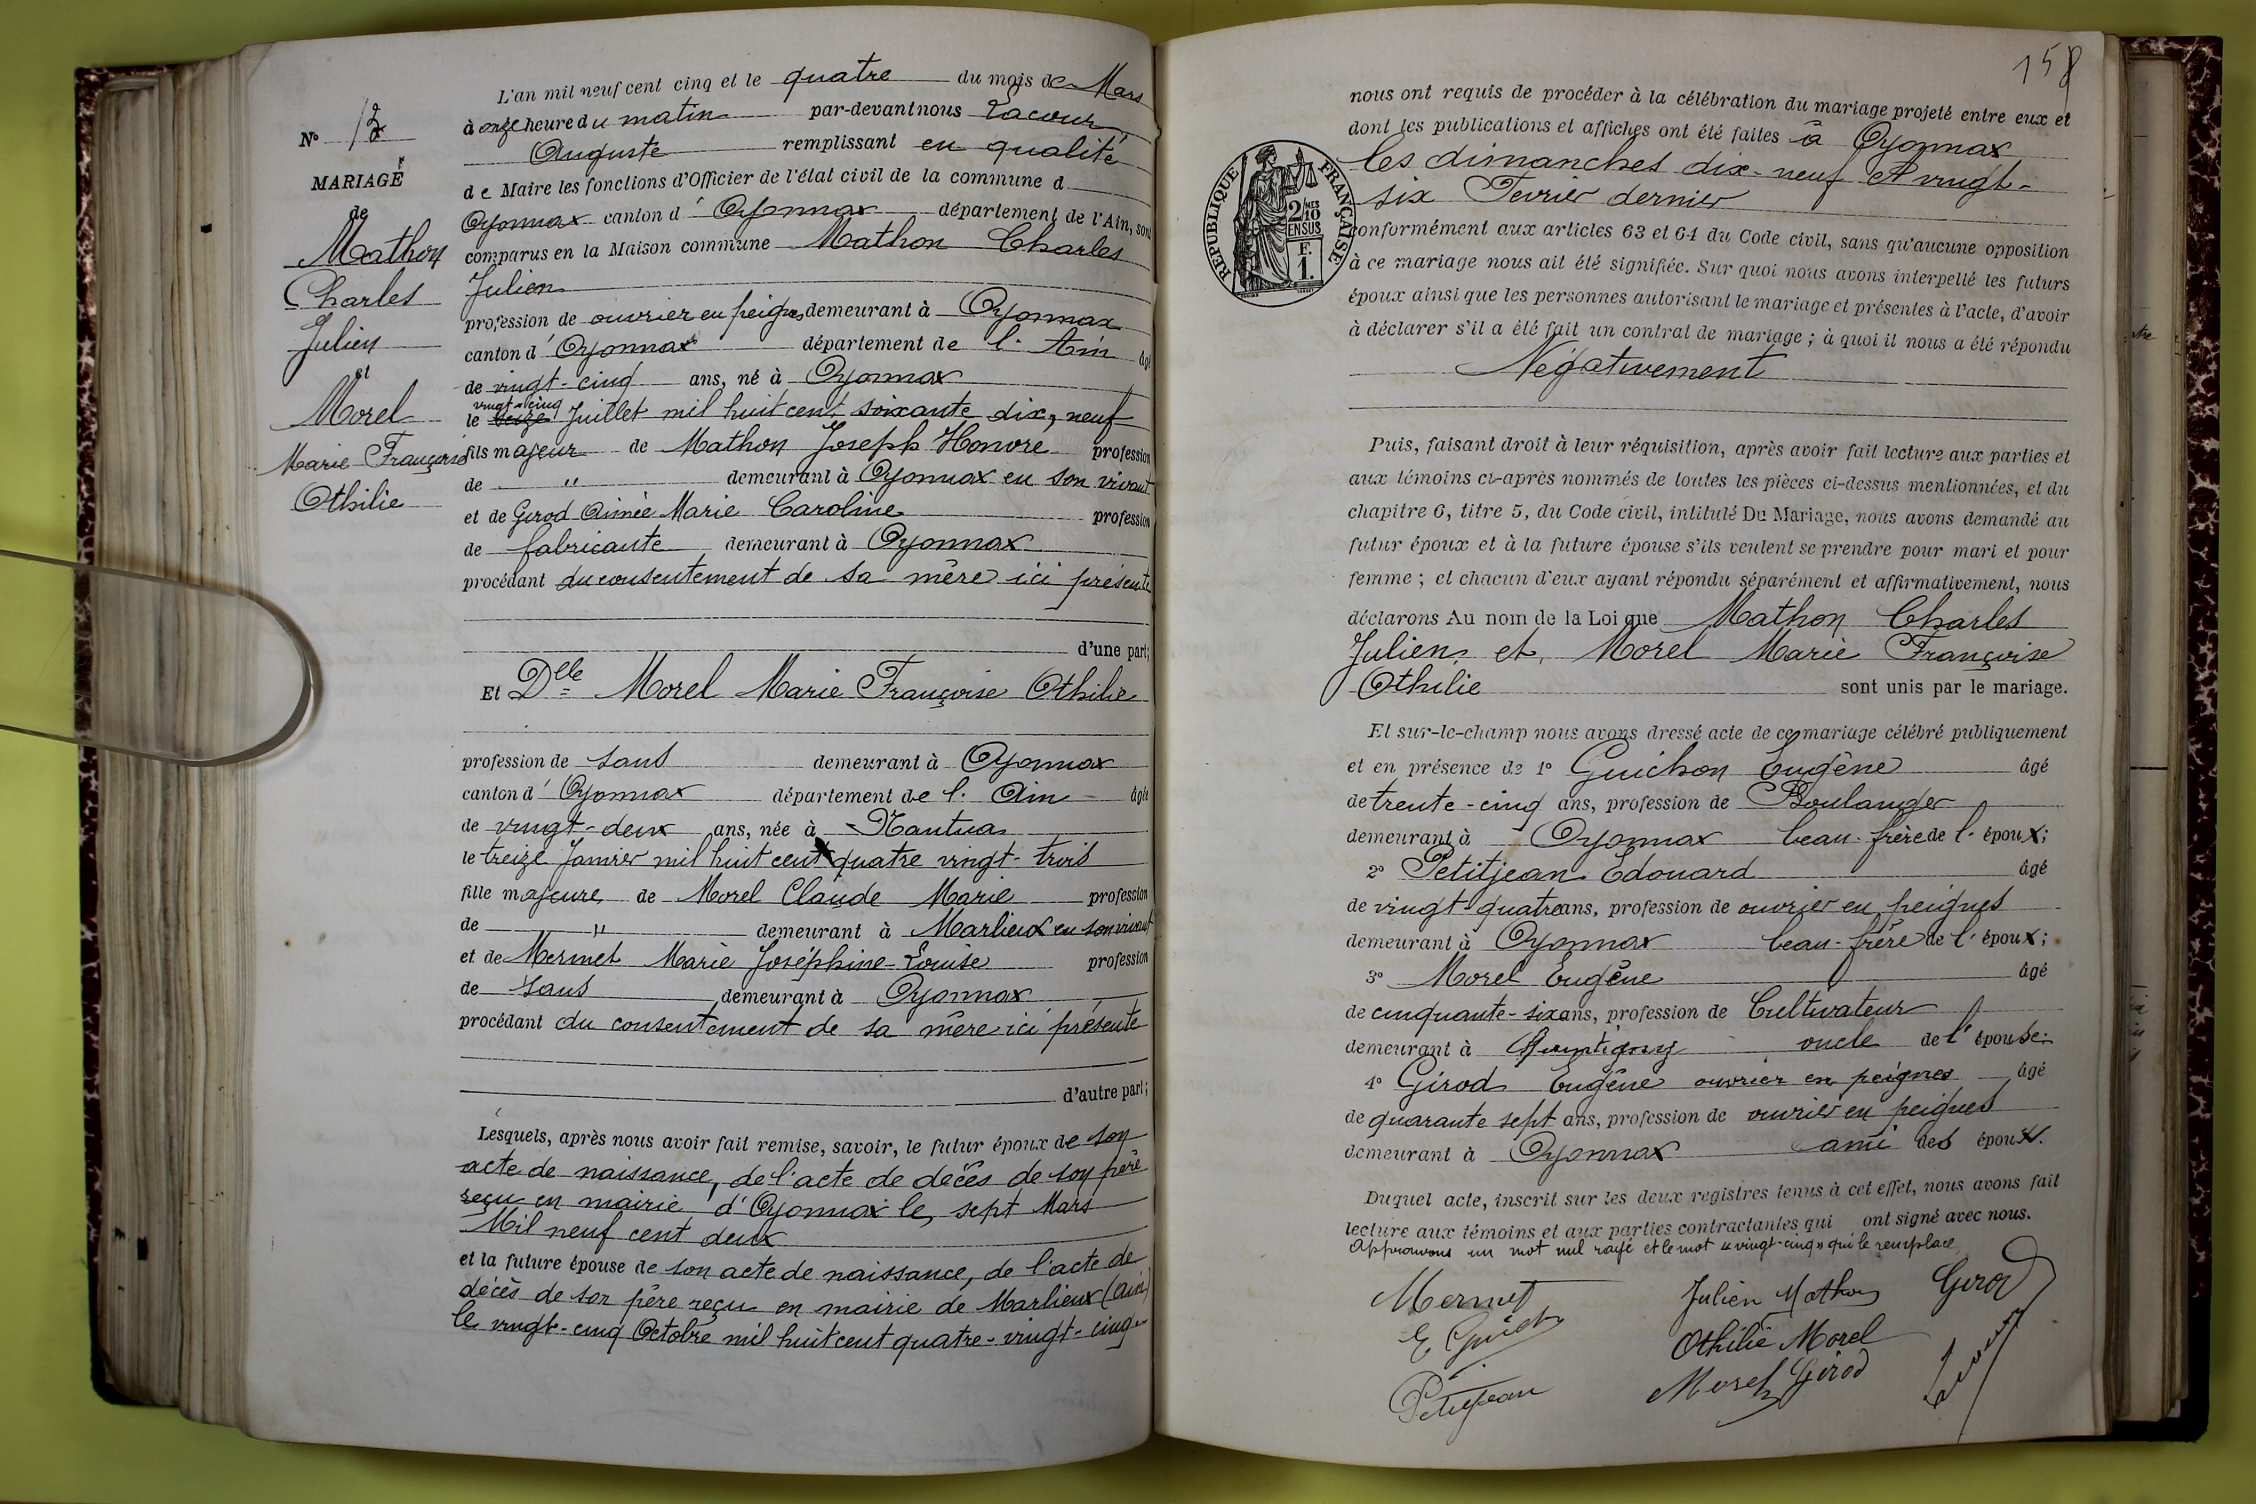 N° 12
MARIAGE
de
Mathon
Charles
Julien
et
Morel
Marie Françoise
Othilie
L'an mil neuf cent cinq et le quatre du mois de Mars
à onze heure du matin par-devant nous Lacour
Auguste remplissant en qualité
de Maire les fonctions d'Officier de l'état civil de la commune d
Oyonnax canton d' Oyonnax département de l'Ain, sont
comparus en la Maison commune Mathon Charles
Julien
profession de ouvrier en peignes demeurant à Oyonnax
canton d' Oyonnax département de l'Ain âgé
de vingt-cinq ans, né à Oyonnax
vingt-cinq
le Juillet mil huit cent soixante dix-neuf
fils majeur de Mathon Joseph Honore profession
de " demeurant à Oyonnax en son vivant
et de Girod Aimée Marie Caroline profession
de fabricante demeurant à Oyonnax
procédant du consentement de sa mère ici présente
d'une part;
Et Delle Morel Marie Françoise Othilie
profession de sans demeurant à Oyonnax
canton d' Oyonnax département de l'Ain âgée
de vingt-deux ans, née à Nantua
le treize Janvier mil huit cent quatre vingt-trois
fille majeure, de Morel Claude Marie profession
de " demeurant à Marlieux en son vivant
et de Mermet Marie Joséphine-Louise profession
de sans demeurant à Oyonnax
procédant du consentement de sa mère ici présente
d'autre part;
Lesquels, après nous avoir fait remise, savoir, le futur époux de son
acte de naissance, de l'acte de décès de son père
reçu en mairie d'Oyonnax le, sept Mars
Mil neuf cent deux
et la future épouse de son acte de naissance, de l'acte de
décès de son père reçu en mairie de Marlieux (Ain)
le vingt-cinq Octobre mil huit cent quatre-vingt-cinq
158
nous ont requis de procéder à la célébration du mariage projeté entre eux et
dont les publications et affiches ont été faites à Oyonnax
les dimanches dix-neuf et vingt-
six Fevrier dernier
RÉPUBLIQUE FRANÇAISE
2/10
EN SUS
F.
1.
conformément aux articles 63 et 64 du Code civil, sans qu'aucune opposition
à ce mariage nous ait été signifiée. Sur quoi nous avons interpellé les futurs
époux ainsi que les personnes autorisant le mariage et présentes à l'acte, d'avoir
à déclarer s'il a été fait un contrat de mariage; à quoi il nous a été répondu
Négativement
Puis, faisant droit à leur réquisition, après avoir fait lecture aux parties et
aux témoins ci-après nommés de toutes les pièces ci-dessus mentionnées, et du
chapitre 6, titre 5, du Code civil, intitulé Du Mariage, nous avons demandé au
futur époux et à la future épouse s'ils veulent se prendre pour mari et pour
femme; et chacun d'eux ayant répondu séparément et affirmativement, nous
déclarons Au nom de la Loi que Mathon Charles
Julien, et, Morel Marie Françoise
Othilie sont unis par le mariage.
Et sur-le-champ nous avons dressé acte de ce mariage célébré publiquement
et en présence de 1° Guichon Eugène âgé
de trente-cinq ans, profession de Boulanger
demeurant à Oyonnax beau-frère de l'époux;
2° Petitjean Edouard âgé
de vingt-quatre ans, profession de ouvrier en peignes
demeurant à Oyonnax beau-frère de l'époux;
3° Morel Eugène âgé
de cinquante-six ans, profession de Cultivateur
demeurant à Quintigny oncle de l'épouse;
4° Girod Eugène ouvrier en peignes âgé
de quarante sept ans, profession de ouvrier en peignes
demeurant à Oyonnax ami des époux.
Duquel acte, inscrit sur les deux registres tenus à cet effet, nous avons fait
lecture aux témoins et aux parties contractantes qui ont signé avec nous.
Approuvons un mot nul rayé et le mot «vingt-cinq» qui le remplace
Mermet Julien Mathon Girod
E Guichon Othilie Morel
Petitjean Morel Girod Lacour